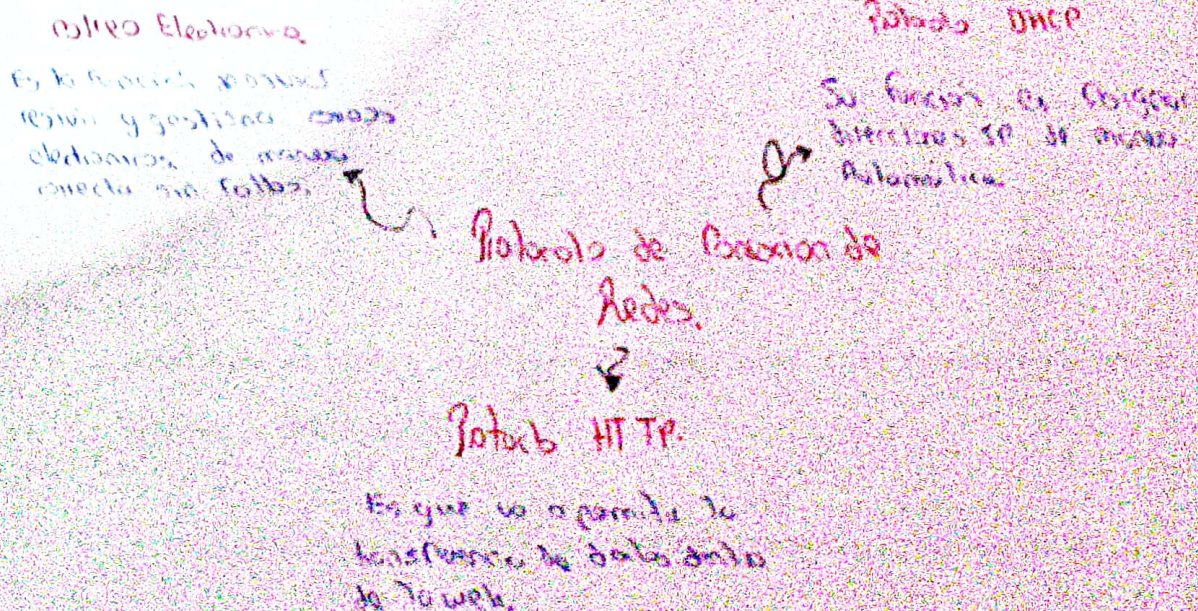 Correo Electronico
Es la función
y gestiona correos
electronicos de manera
correcta sin fallos.
Protocolo DHCP
Su función es asignar
direcciones IP de manera
Automática
Protocolo de Conexion de
Redes.
Protocolo HTTP.
Es que va a permitir la
transferencia de datos dentro
de la web.